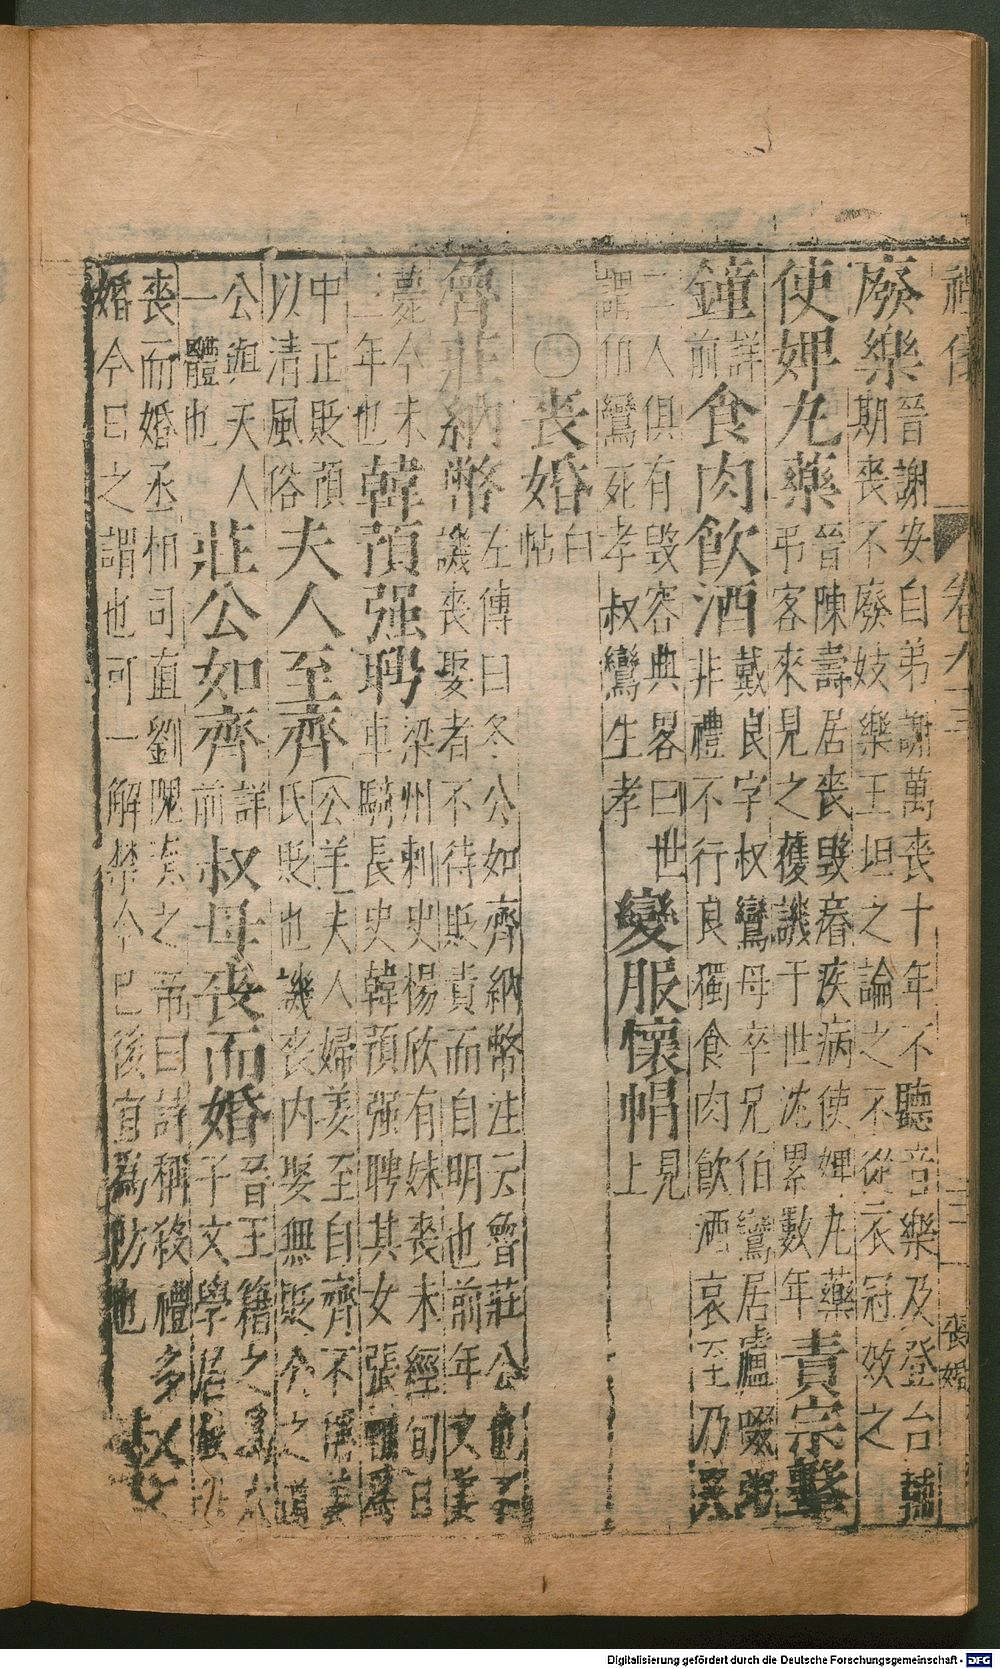 禮儀 卷九 三 喪婚
廢樂 晉謝安自弟謝萬喪十年不聽音樂及登台輔
期喪不廢妓樂王坦之論之不從衣冠效之
使婢丸藥 晉陳壽居喪毀瘠疾病使婢丸藥
弔客來見之獲譏于世沈累數年 責宗擊
鐘 詳前 食肉飲酒 戴良字叔鸞母卒兄伯鸞居廬啜粥
非禮不行良獨食肉飲酒哀至乃哭
二人俱有毀容典畧曰世
謂伯鸞死孝叔鸞生孝 變服懷帽 見上
〇喪婚 白帖
魯莊納幣 左傳曰冬公如齊納幣注云魯莊公
譏喪娶者不待貶責而自明也前年文姜
薨今未
二年也 韓預强聘 梁州刺史楊欣有妹喪未經旬日
車騎長史韓預强聘其女張
中正貶預
以清風俗 夫人至齊 公羊夫人婦姜至自齊不
氏貶也譏喪内娶無貶今之
公與夫人
一體也 莊公如齊 詳前 叔母喪而婚 晉王籍之
子文學居
喪而婚丞相司直劉隗奏之帝曰詩稱殺禮多
婚今日之謂也可一解禁今已後宜為防也 叔父
Digitalisierung gefördert durch die Deutsche Forschungsgemeinschaft - DFG